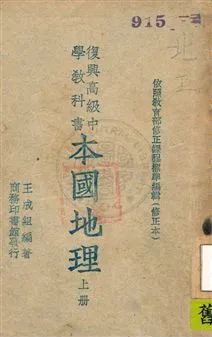 915
依照教育部修正課程標準編輯(修正本)
復興高級中
學教科書
本國地理
上册
王成組編著
商務印書館發行
舊